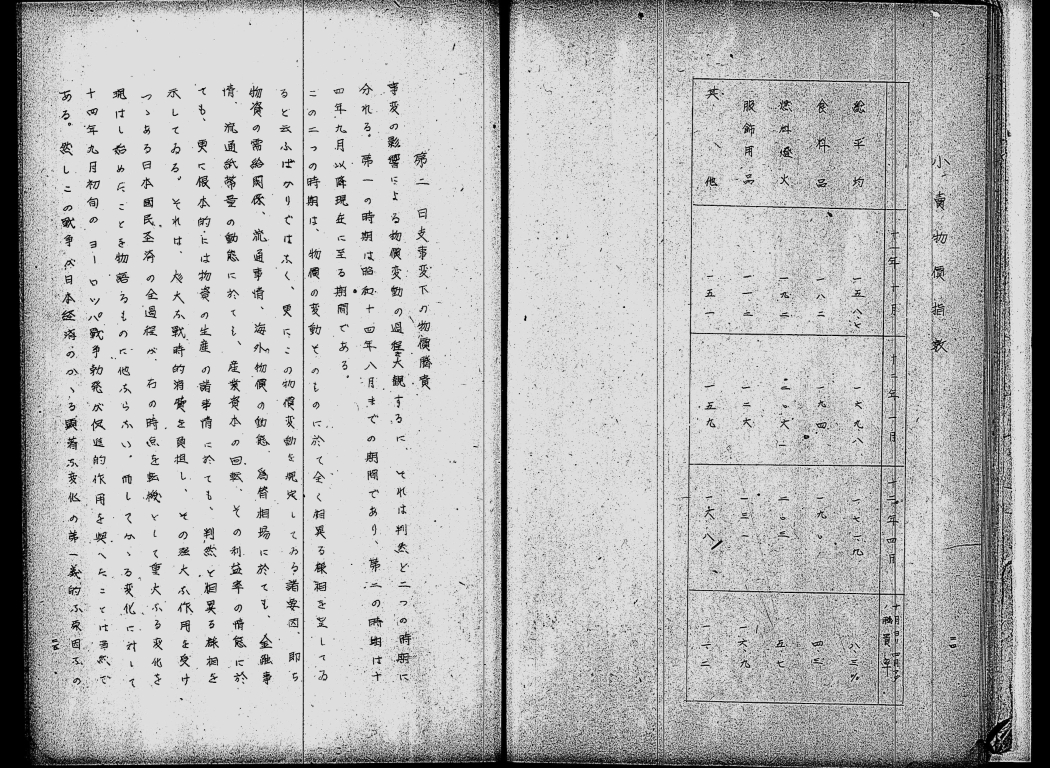 小賣物價指数
十一年十一月 十二年一月 十二年四月 十一月ヨリ四月マデ騰貴率
総平均 一五八・七 一六九・八 一七二・九 八・三%
食料品 一八二 一九四 一九〇 四三
燃料燈火 一九二 二〇六 二〇三 五七
服飾用品 一一二 一二六 一三一 一六九
其ノ他 一五一 一五九 一六八 一一二
二四
第二 日支事変下の物價騰貴
事変の影響による物價変動の過程を大観するに、それは判然と二つの時期に
分れる。第一の時期は昭和十四年八月までの期間であり、第二の時期は十
四年九月以降現在に至る期間である。
この二つの時期は、物價の変動そのものに於て全く相異る様相を呈してゐ
ると云ふばかりではなく、更にこの物價変動を規定してゐる諸要因、即ち
物資の需給関係、流通事情、海外物價の動態、為替相場に於ても、金融事
情、流通紙幣量の動態に於ても、産業資本の回転、その利益率の情態に於
ても、更に根本的には物資の生産の諸事情に於ても、判然と相異る様相を
示してゐる。それは、尨大な戦時的消費を負担し、その強大な作用を受け
つゝある日本國民経済の全過程が、右の時点を転機として重大なる変化を
現はし始めたことを物語るものに他ならない。而してかゝる変化に対して
十四年九月初旬のヨーロッパ戦争勃発が促進的作用を與へたことは当然で
ある。然しこの戦争が日本経済のかゝる顕著な変化の第一義的な原因なの
二五